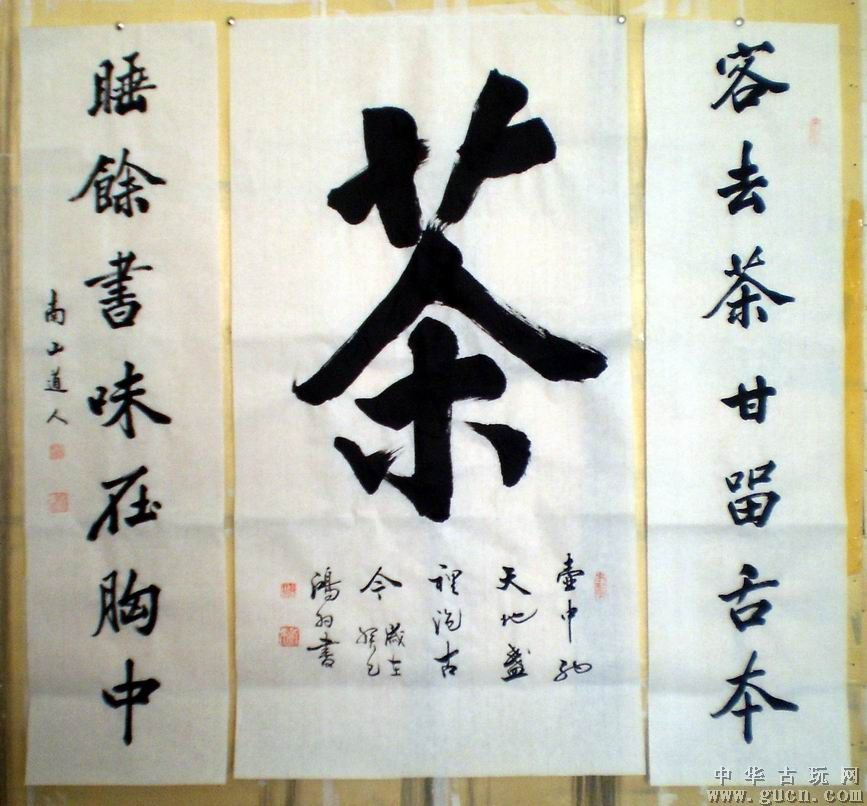 客去茶甘留舌本
茶
壺中納
天地盞
裡泡古
今 歲在
癸巳
鴻 書
睡餘書味在胸中
南山道人
中华古玩网
www.gucn.com